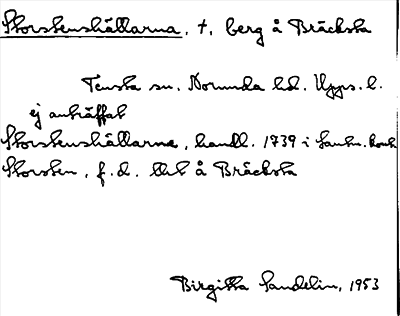 Storstenshällarna, t, berg å Bräcksta
Tensta sn. Norunda hd. Upps. l.
ej anträffat
Storstenshällarne, handl. 1739 i Lantm. kont
Storsten, f.d. tht å Bräcksta
Birgitta Sandelin, 1953